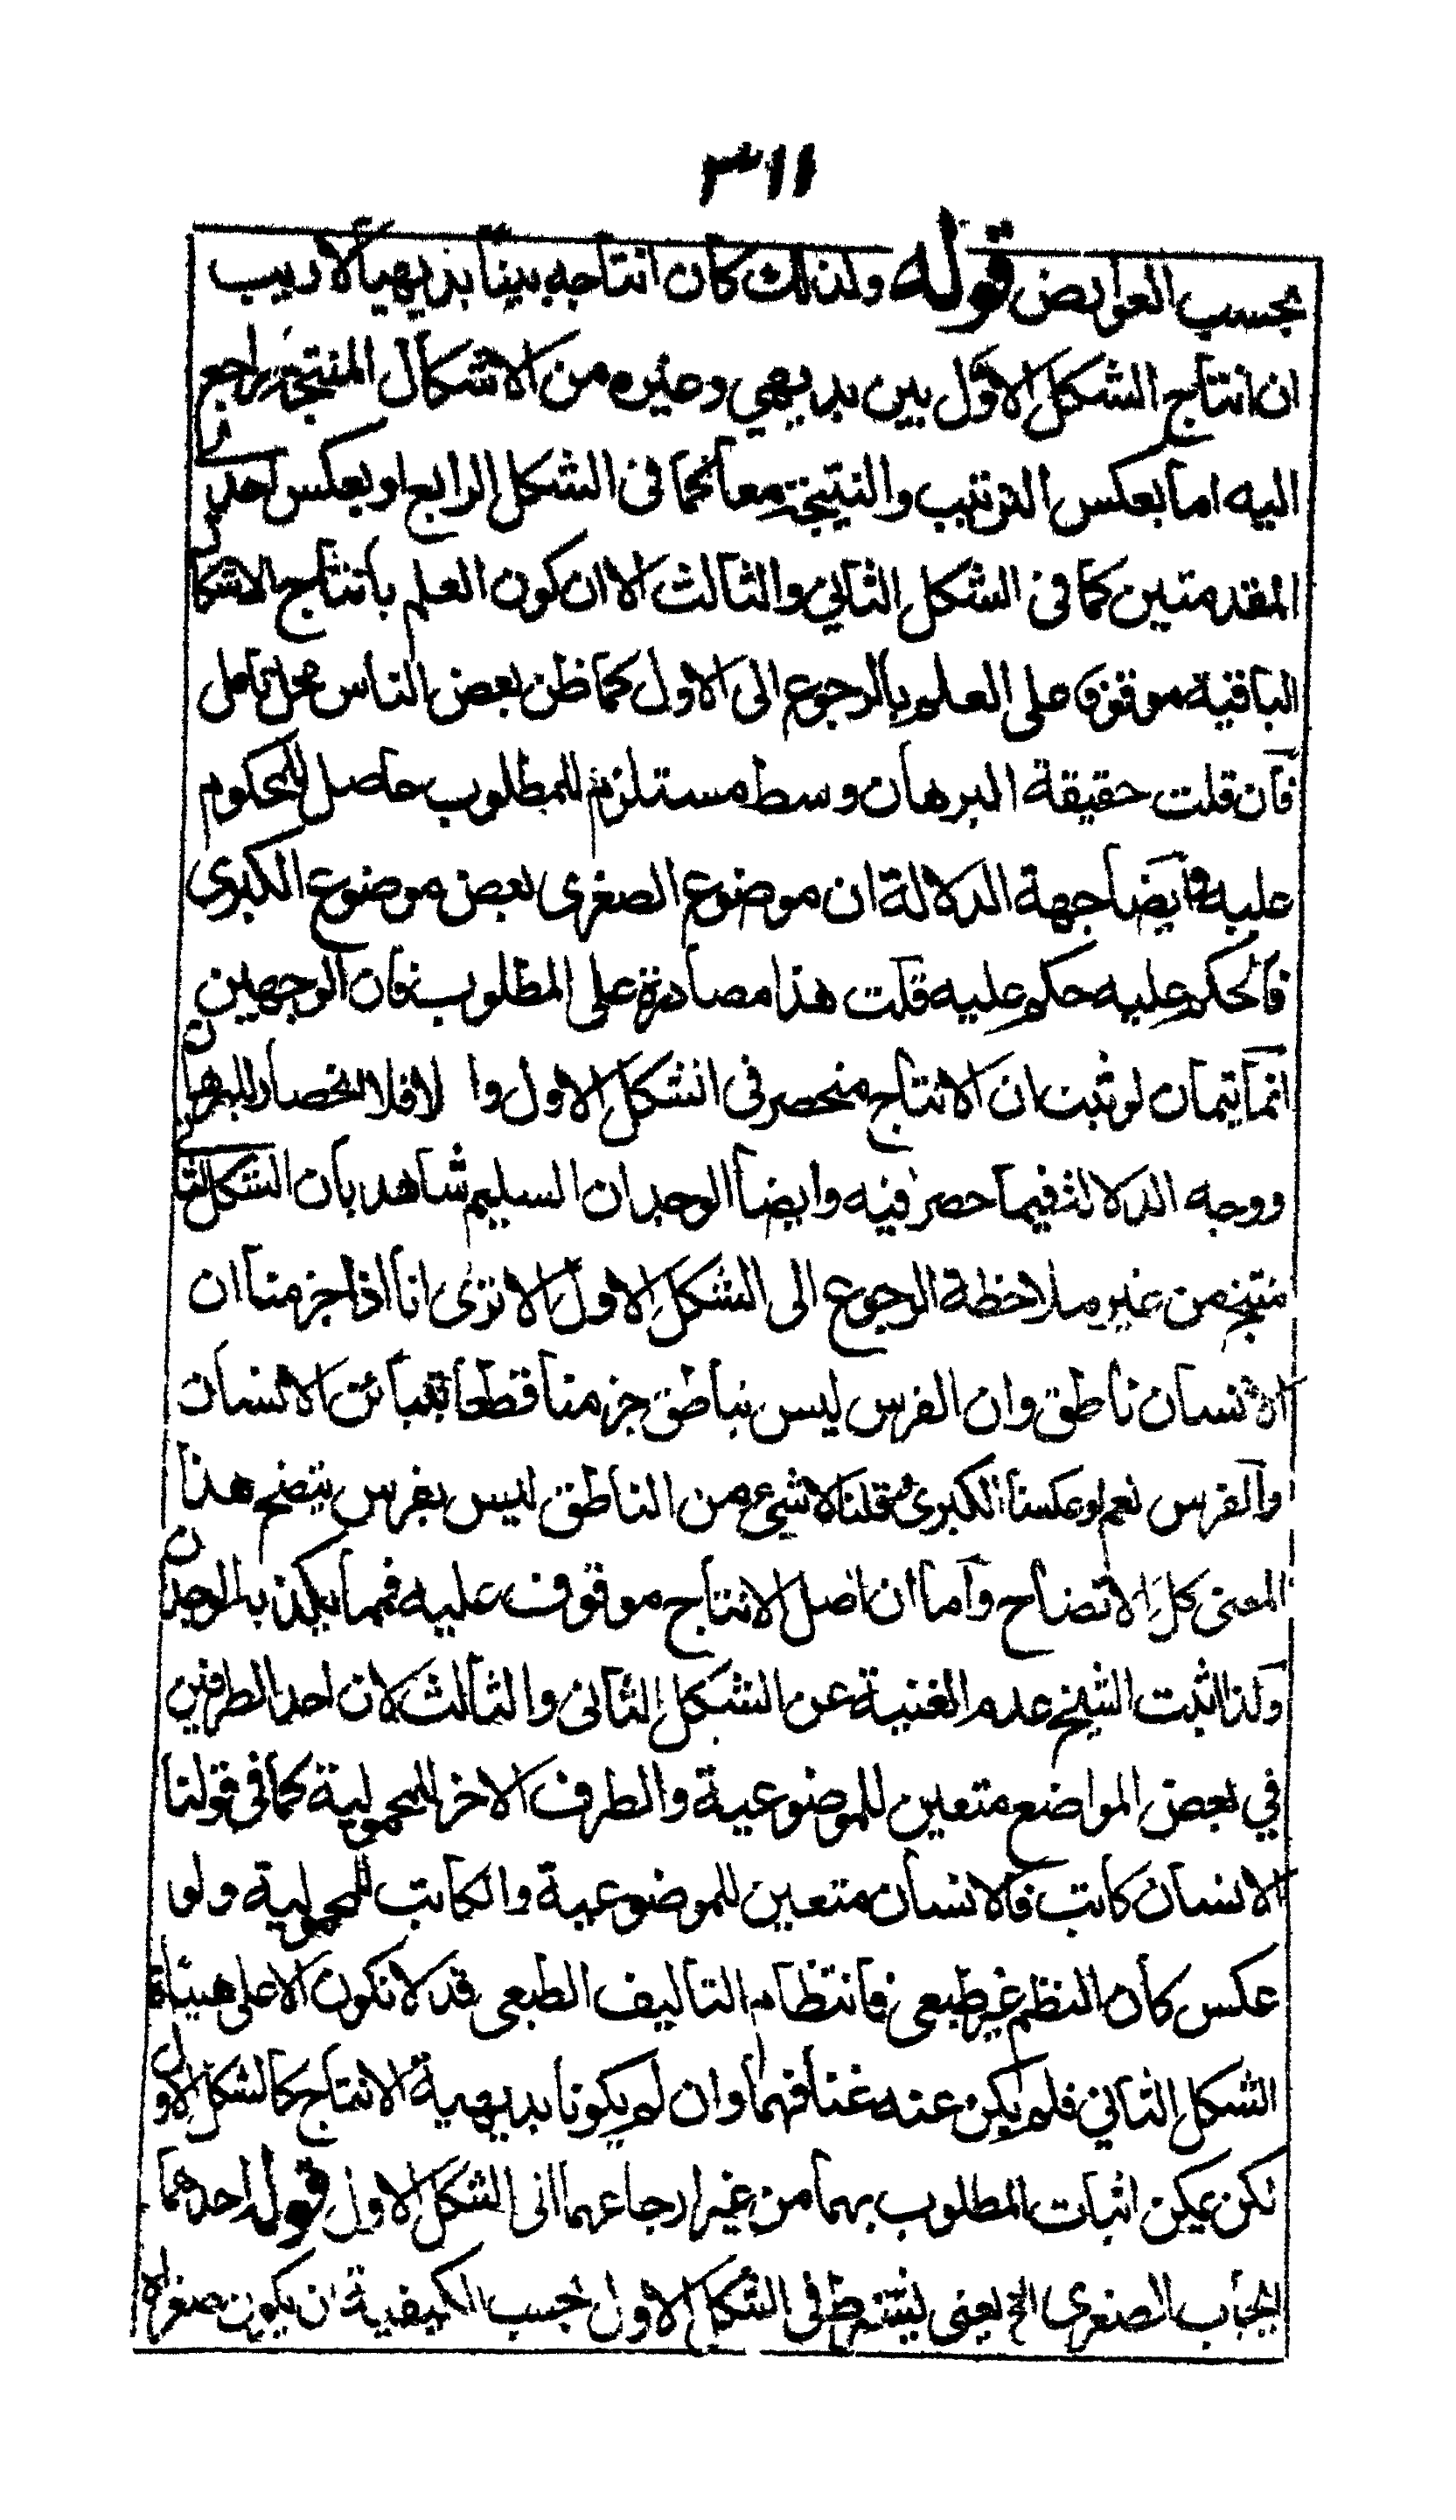 ٣١١
بحسب العوارض قوله ولذلك كان انتاجه بينا بديهيا لا ريب
ان انتاج الشكل الاول بين بديهي وغيره من الاشكال المنتجة راجع
اليه اما بعكس الترتيب والنتيجة معا كما فى الشكل الرابع او بعكس احدى
المقدمتين كما فى الشكل الثاني والثالث الا ان كون العلم بانتاج الاشكال
الباقية موقوفا على العلم بالرجوع الى الاول كما ظن بعض الناس محل تامل
فان قلت حقيقة البرهان وسط مستلزم للمطلوب حاصل للمحكوم
عليه وايضا جهة الدلالة ان موضوع الصغرى بعض موضوع الكبرى
فالحكم عليه حكم عليه قلت هذا مصادرة على المطلوب فان الوجهين
انما يتمان لو ثبت ان الانتاج منحصر فى الشكل الاول والا فلا انحصار للبرهان
ووجه الدلالة فيما حصر فيه وايضا الوجدان السليم شاهد بان الشكل الثانى
منتج من غير ملاحظة الرجوع الى الشكل الاول الا ترى انا اذا جزمنا ان
الانسان ناطق وان الفرس ليس بناطق جزمنا قطعا بتبائن الانسان
والفرس نعم لو عكسنا الكبرى وقلنا لا شيء من الناطق ليس بفرس يتضح هذا
المعنى كل الاتضاح واما ان اصل الانتاج موقوف عليه فمما يكذبه الوجدان
ولذا اثبت الشيخ عدم الغنية عن الشكل الثانى والثالث لان احد الطرفين
في بعض المواضع متعين للموضوعية والطرف الاخر للمحمولية كما فى قولنا
الانسان كاتب فالانسان متعين للموضوعية والكاتب للمحمولية ولو
عكس كان النظم غير طبعى فانتظام التاليف الطبعى قد لا تكون الا على هيئاة
الشكل الثاني فلم يكن عنه غنا فهما وان لم يكونا بديهية الانتاج كالشكل الاول
لكن يمكن اثبات المطلوب بهما من غير ارجاعهما الى الشكل الاول قوله احدهما
ايجاب الصغرى الخ يعنى يشترط فى الشكل الاول بحسب الكيفية ان يكون صغراه